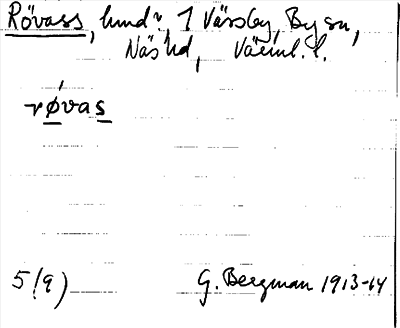 Rövass, hmd ~. 1 Värsby, By sn,
Näs hd, Värml. l.
røvas
5(9) G. Bergman 1913-14